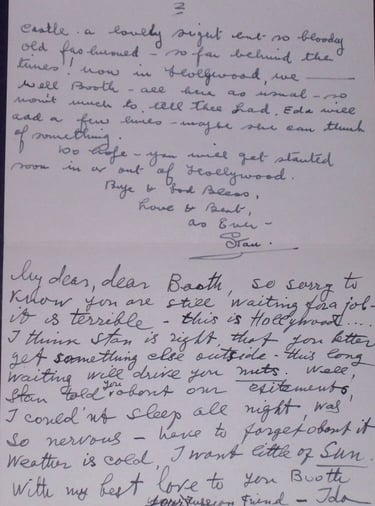 2
Castle. a lovely sight but so bloody
old fashioned - so far behind the
times! now in Hollywood we ———
Well Booth - all here as usual - so
won't much to tell thee Lad. Eda will
add a few lines - maybe she can think
of something.
Do hope - you will get started
soon in or out of Hollywood.
Bye & God Bless,
Love & Best,
as Ever -
Stan.
My dear, dear Booth, so sorry to
know you are still waiting for a job -
it is terrible - this is Hollywood....
I think Stan is right, that you better
get something else outside - this long
waiting will drive you nuts. Well,
Stan told you about our exitements,
I could'nt sleep all night, was
so nervous - have to forget about it
Weather is cold, I want little of Sun.
With my best love to you Booth
your Russian Friend - Ida